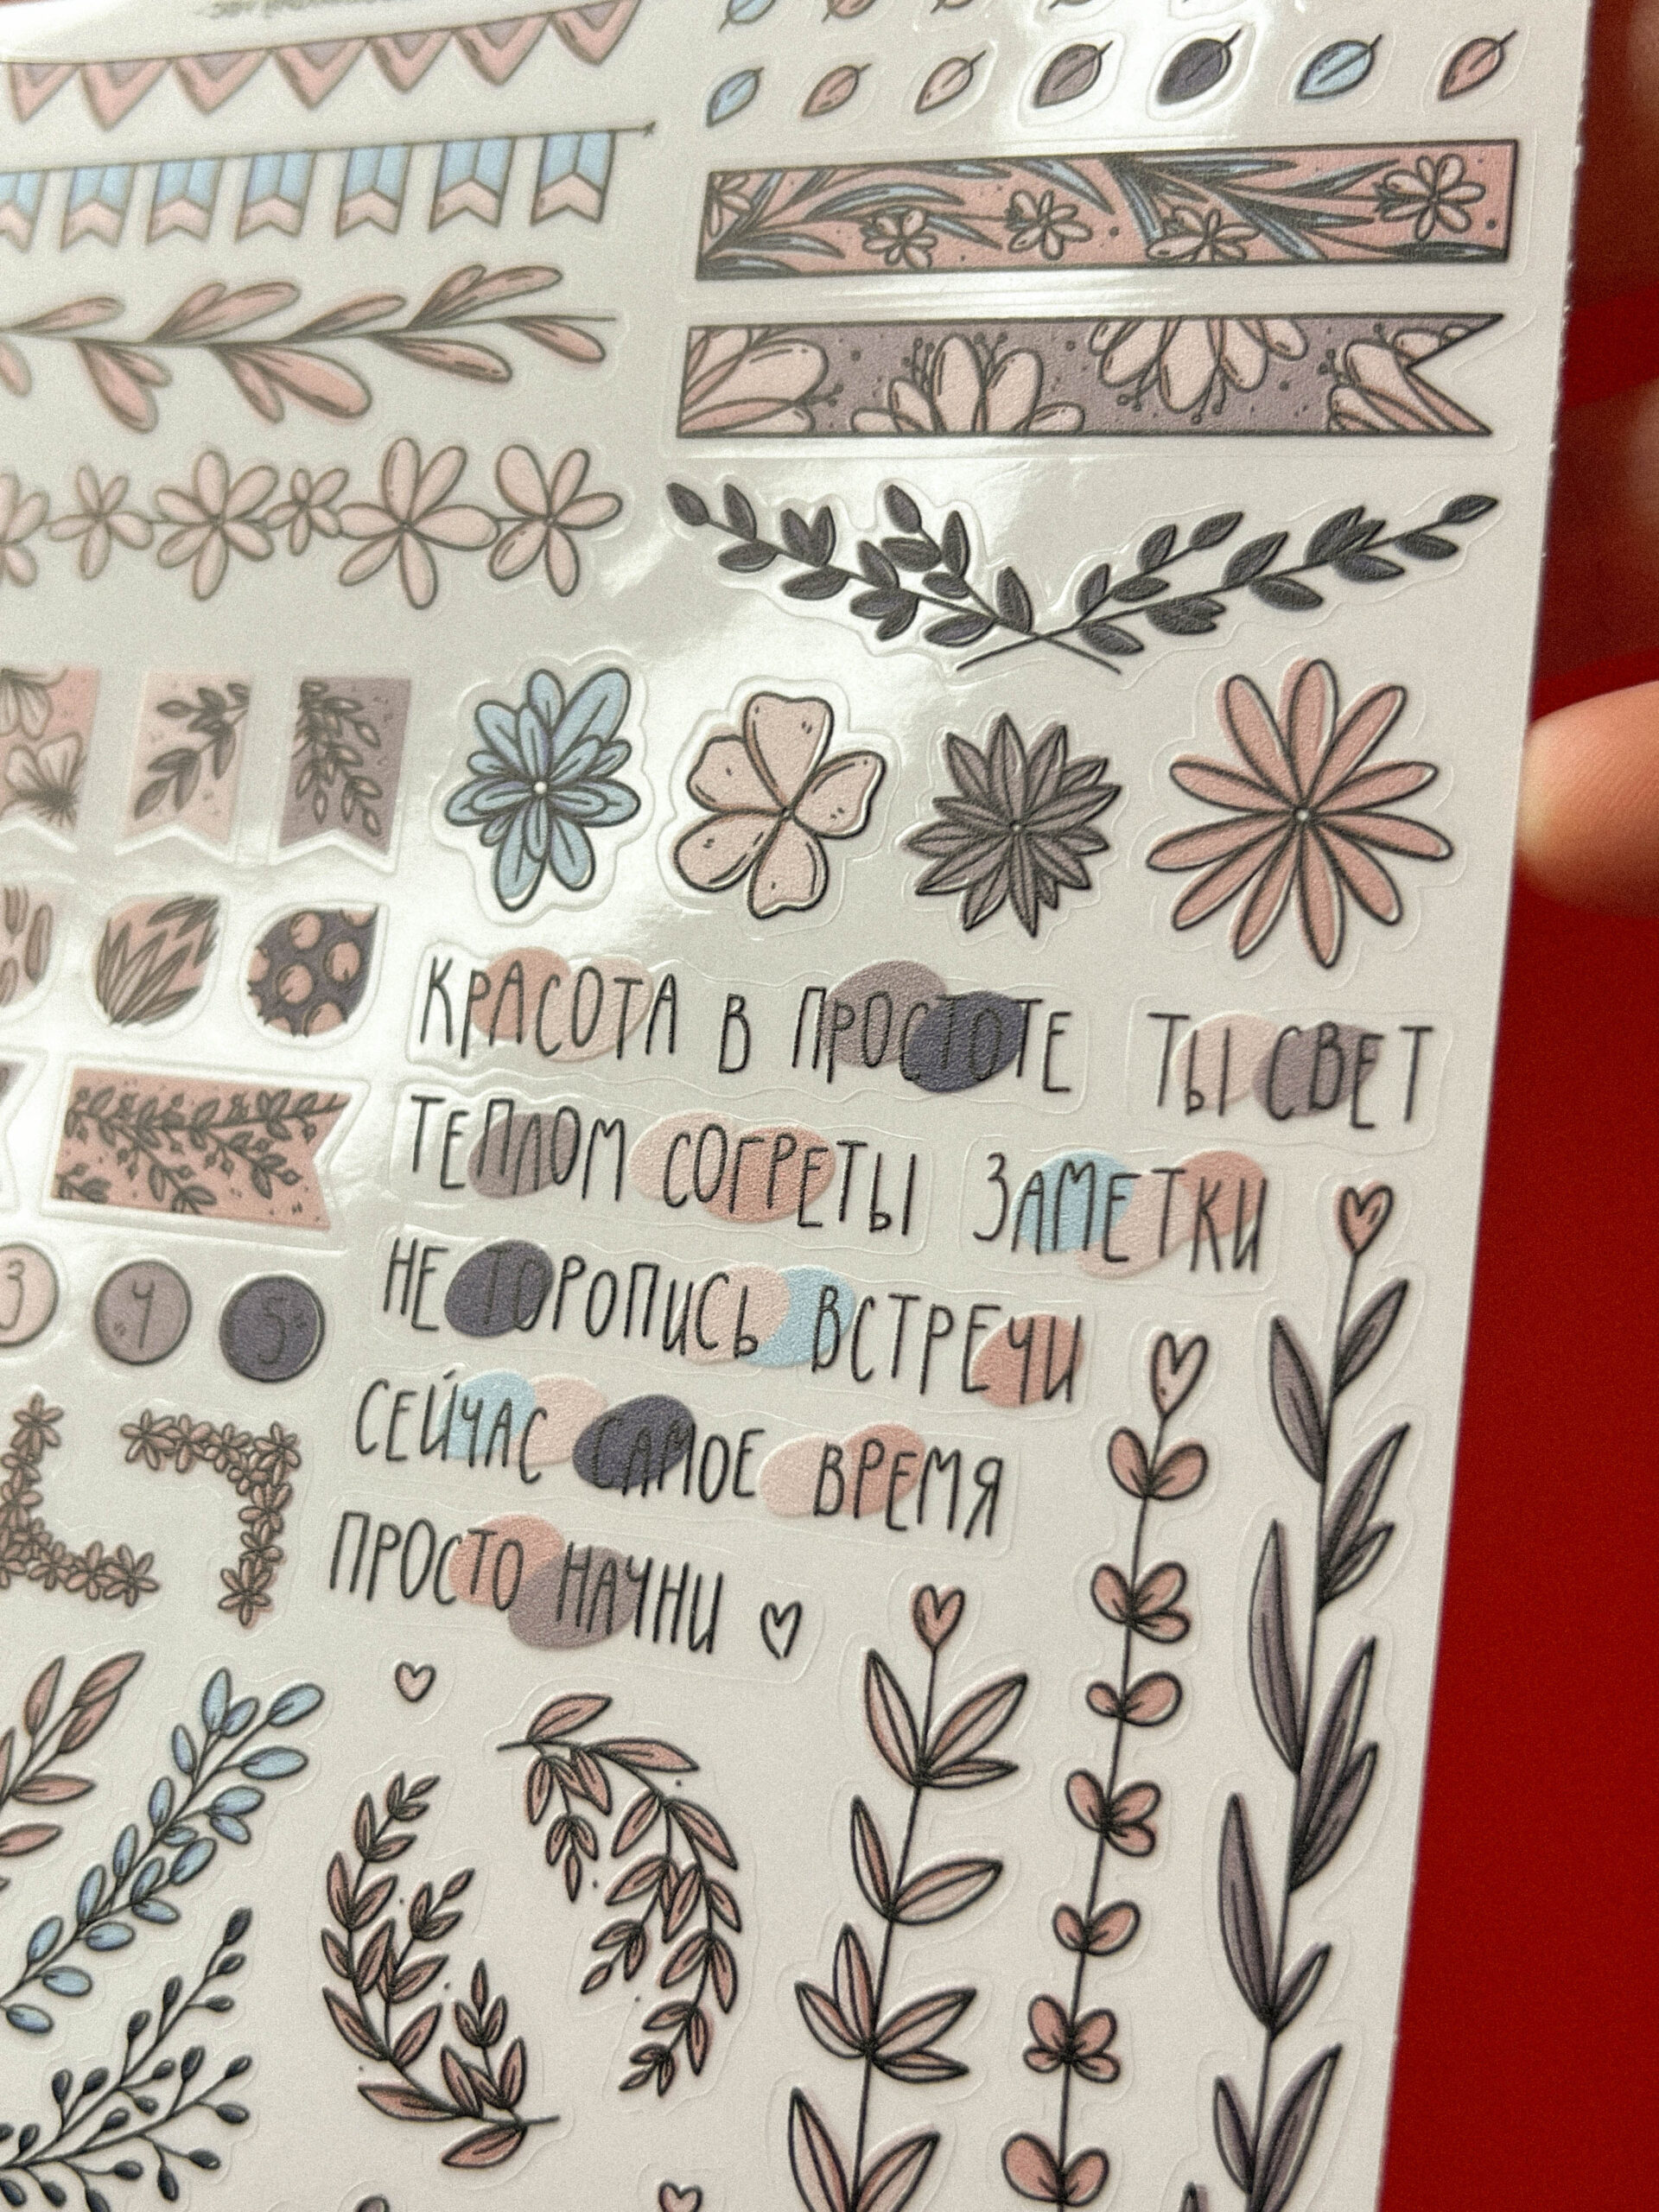 КРАСОТА В ПРОСТОТЕ ТЫ СВЕТ
ТЕПЛОМ СОГРЕТЫ ЗАМЕТКИ
НЕ ТОРОПИСЬ ВСТРЕЧИ
3 4 5
СЕЙЧАС САМОЕ ВРЕМЯ
ПРОСТО НАЧНИ